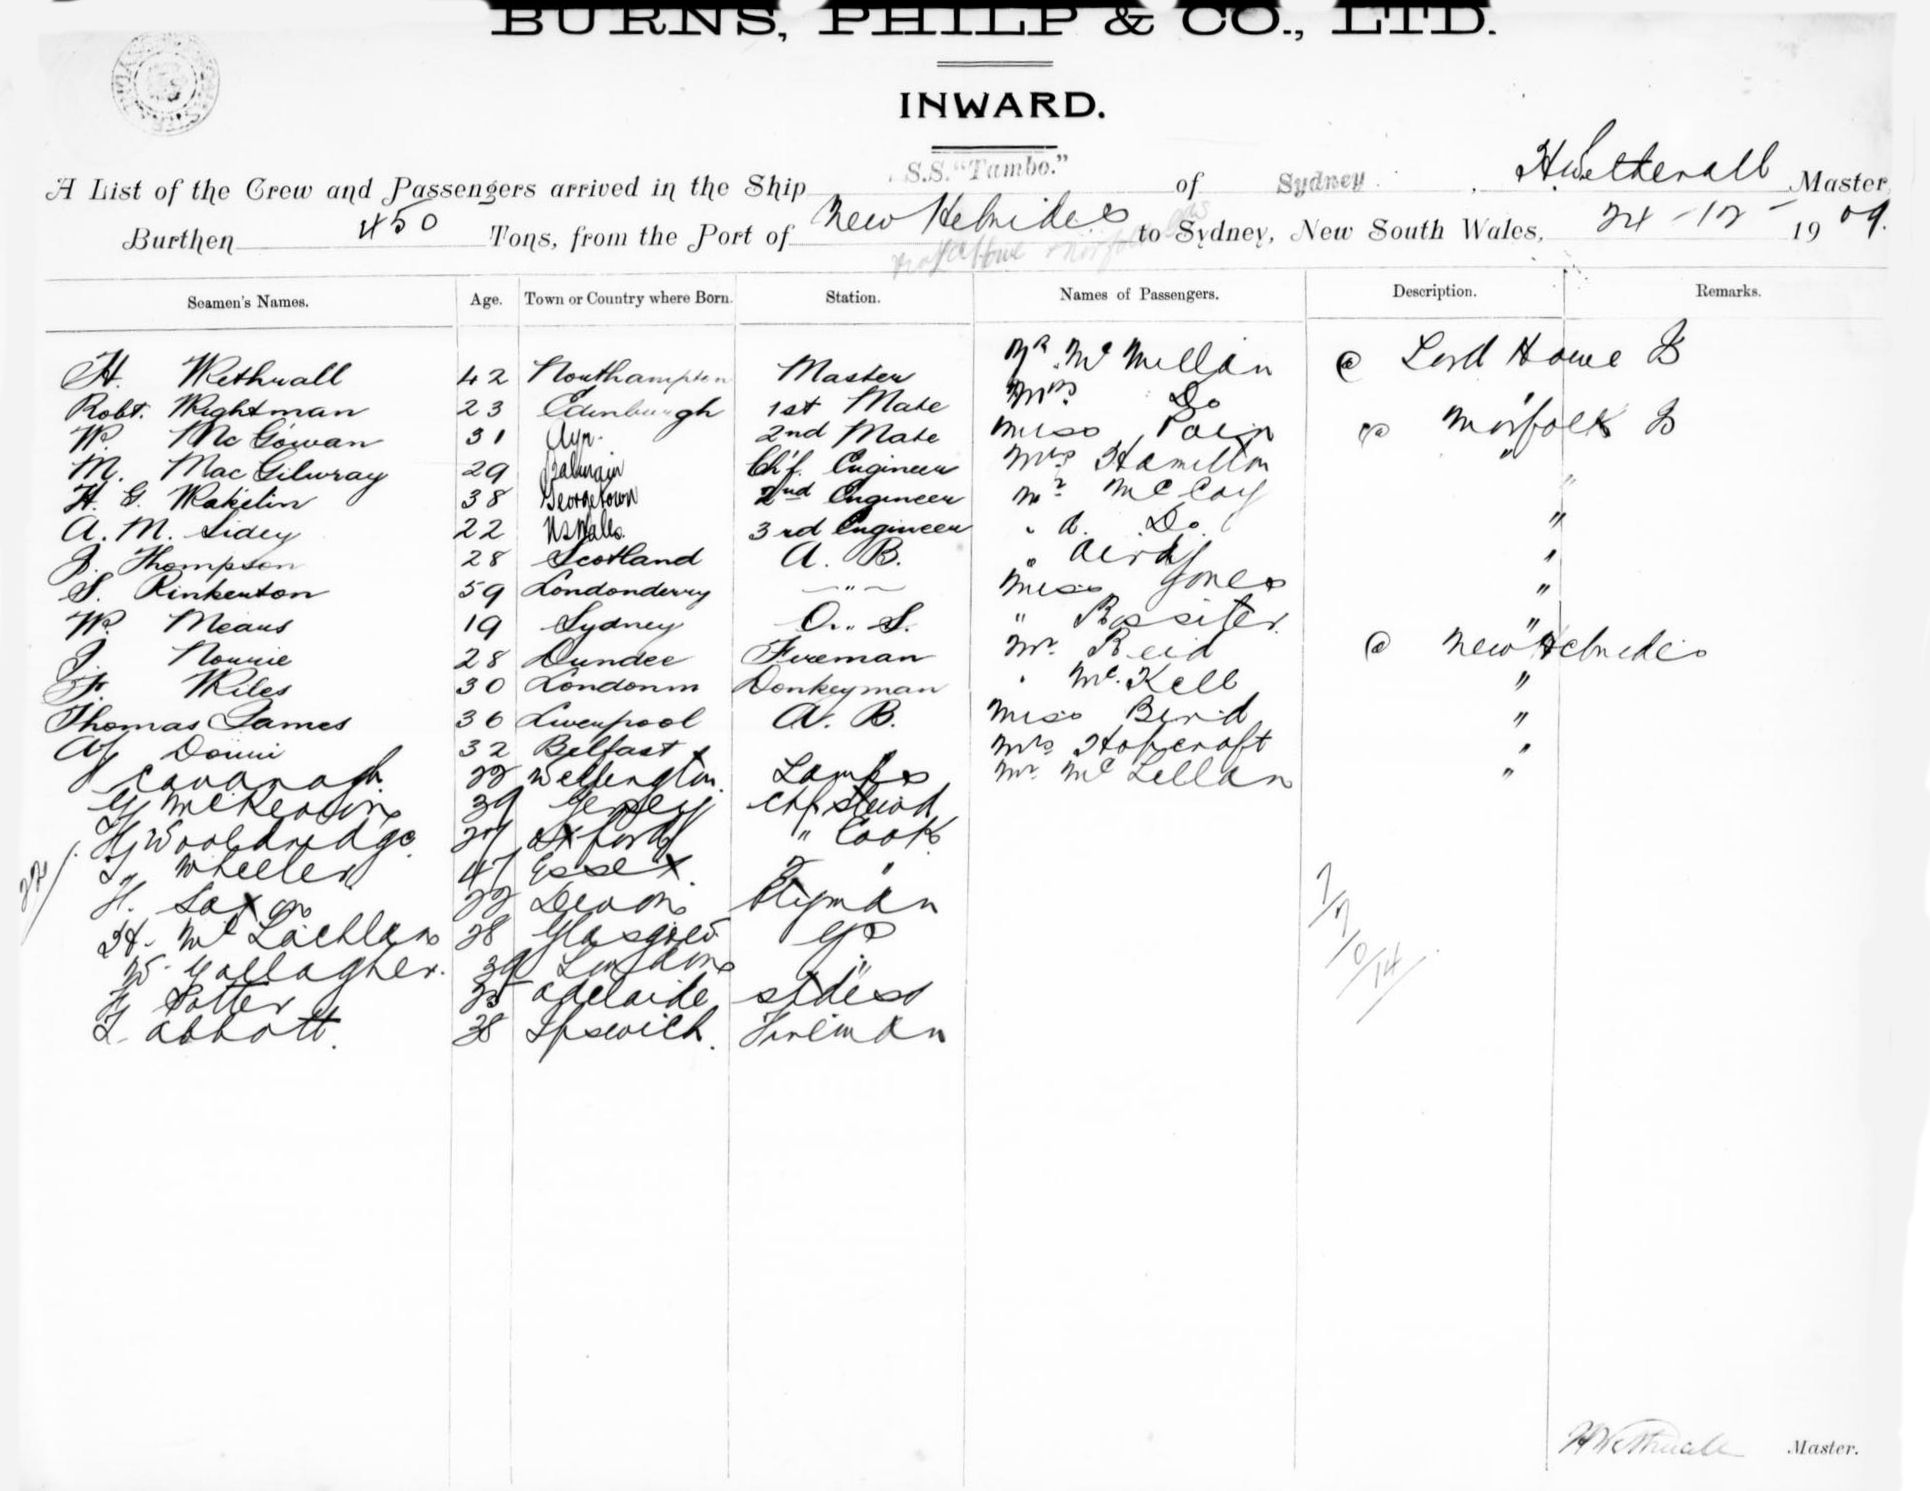 BURNS, PHILP & CO., LTD.
INWARD.
A List of the Crew and Passengers arrived in the Ship S.S. "Tambo." of Sydney, H. Wetherall Master,
Burthen 450 Tons, from the Port of New Hebrides to Sydney, New South Wales, 24-12-1909.
Seamen's Names. Age. Town or Country where Born. Station. Names of Passengers. Description. Remarks.
H. Wetherall 42 Northampton Master Mr. Mc Millan @ Lord Howe Is
Robt. Wightman 23 Edinburgh 1st Mate Mrs Do "
W. Mc Gowan 31 Ayr. 2nd Mate Miss @ Norfolk Is
M. Mac Gilwray 29 Balmain Ch'f. Engineer Mrs Hamilton "
H. G. Wakelin 38 Georgetown 2nd Engineer Mr McCoy "
A. M. Sidey 22 NSWales. 3rd Engineer " A. Do. "
J. Thompson 28 Scotland A. B. " "
S. Pinkerton 59 Londonderry " Miss Jones "
W. Means 19 Sydney O.. S. " Rossiter. "
J. Nourie 28 Dundee Fireman Mr. Reid @ New Hebrides
F. Wiles 30 Donkeyman " "
Thomas James 36 Liverpool A. B. Miss Bird "
32 Belfast Mrs Hopcroft "
J Cavanagh 22 Wellington. Lamps Mr. Mc Lellan "
39 Jersey Chf Steward
H Wooldridge Oxford " Cook
Wheeler 47 Essex. 2 "
H. Saxon 22 Devon
H. Mc Lachlan 28 Glasgow
W. Gallagher. 39 London "
H Potter Adelaide stdess
L. Abbott. 38 Ipswich. Fireman
22/
H Wetherall Master.